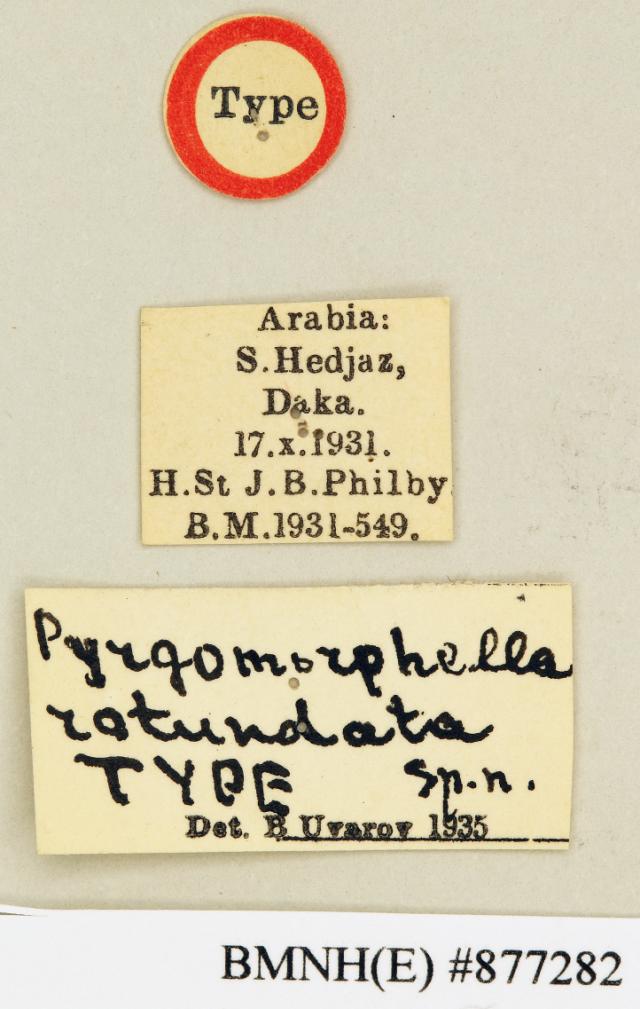 Type
Arabia:
S.Hedjaz,
Daka.
17.x.1931.
H.St J.B.Philby.
B.M.1931-549.
Pyrgomorphella
rotundata
TYPE sp.n.
Det. B Uvarov 1935
BMNH(E) #877282